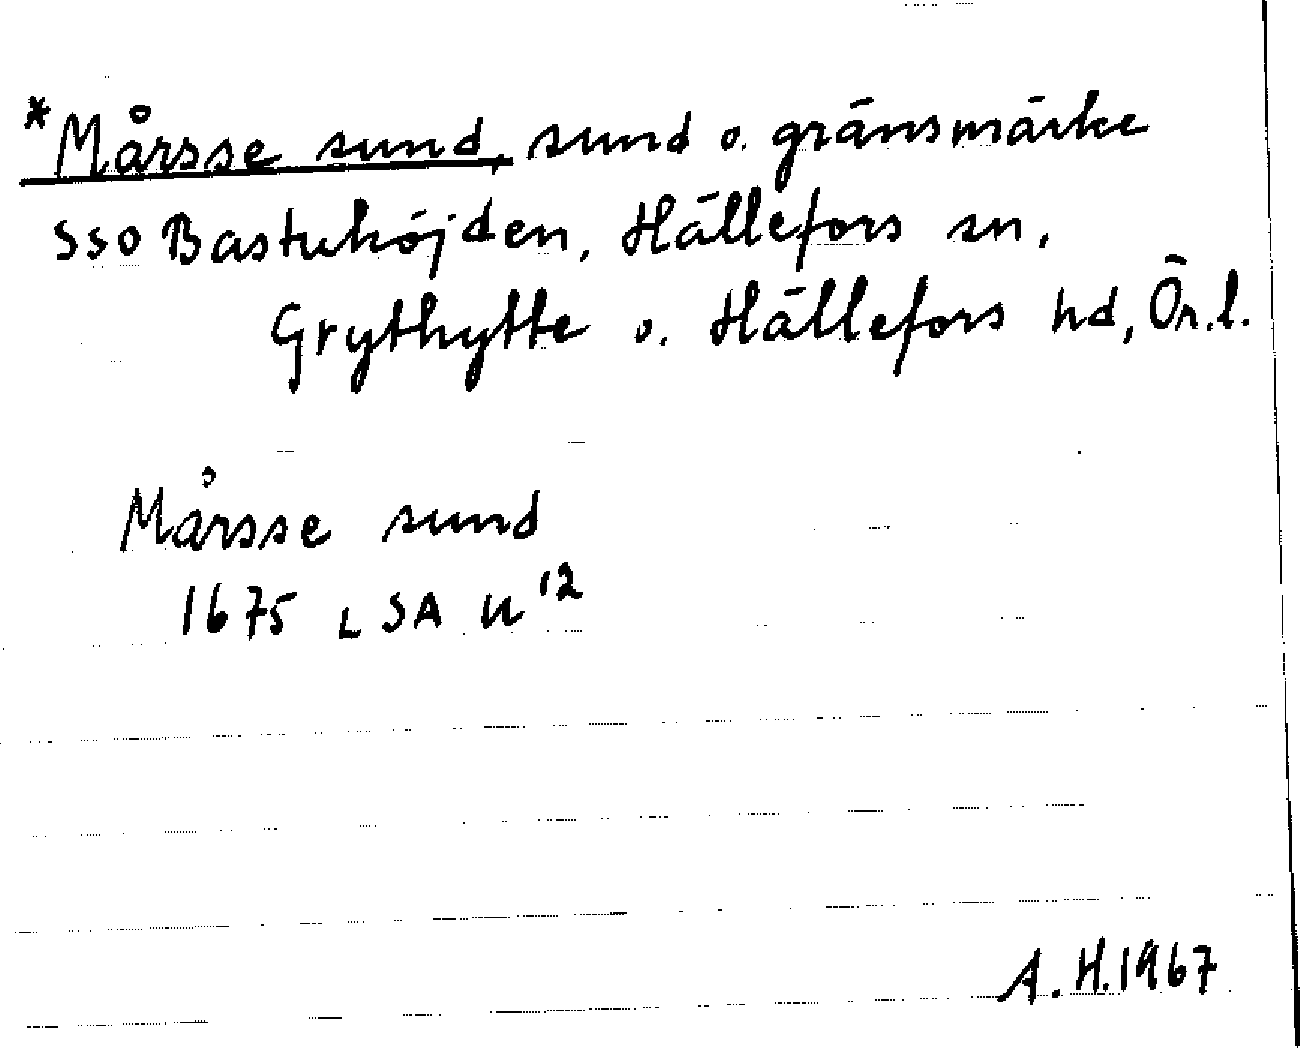 *Mårsse sund, sund o. gränsmärke
SSO Bastuhöjden, Hällefors sn,
Grythytte o. Hällefors hd, Ör.l.
Mårsse sund
1675 LSA U 12
A.H.1967